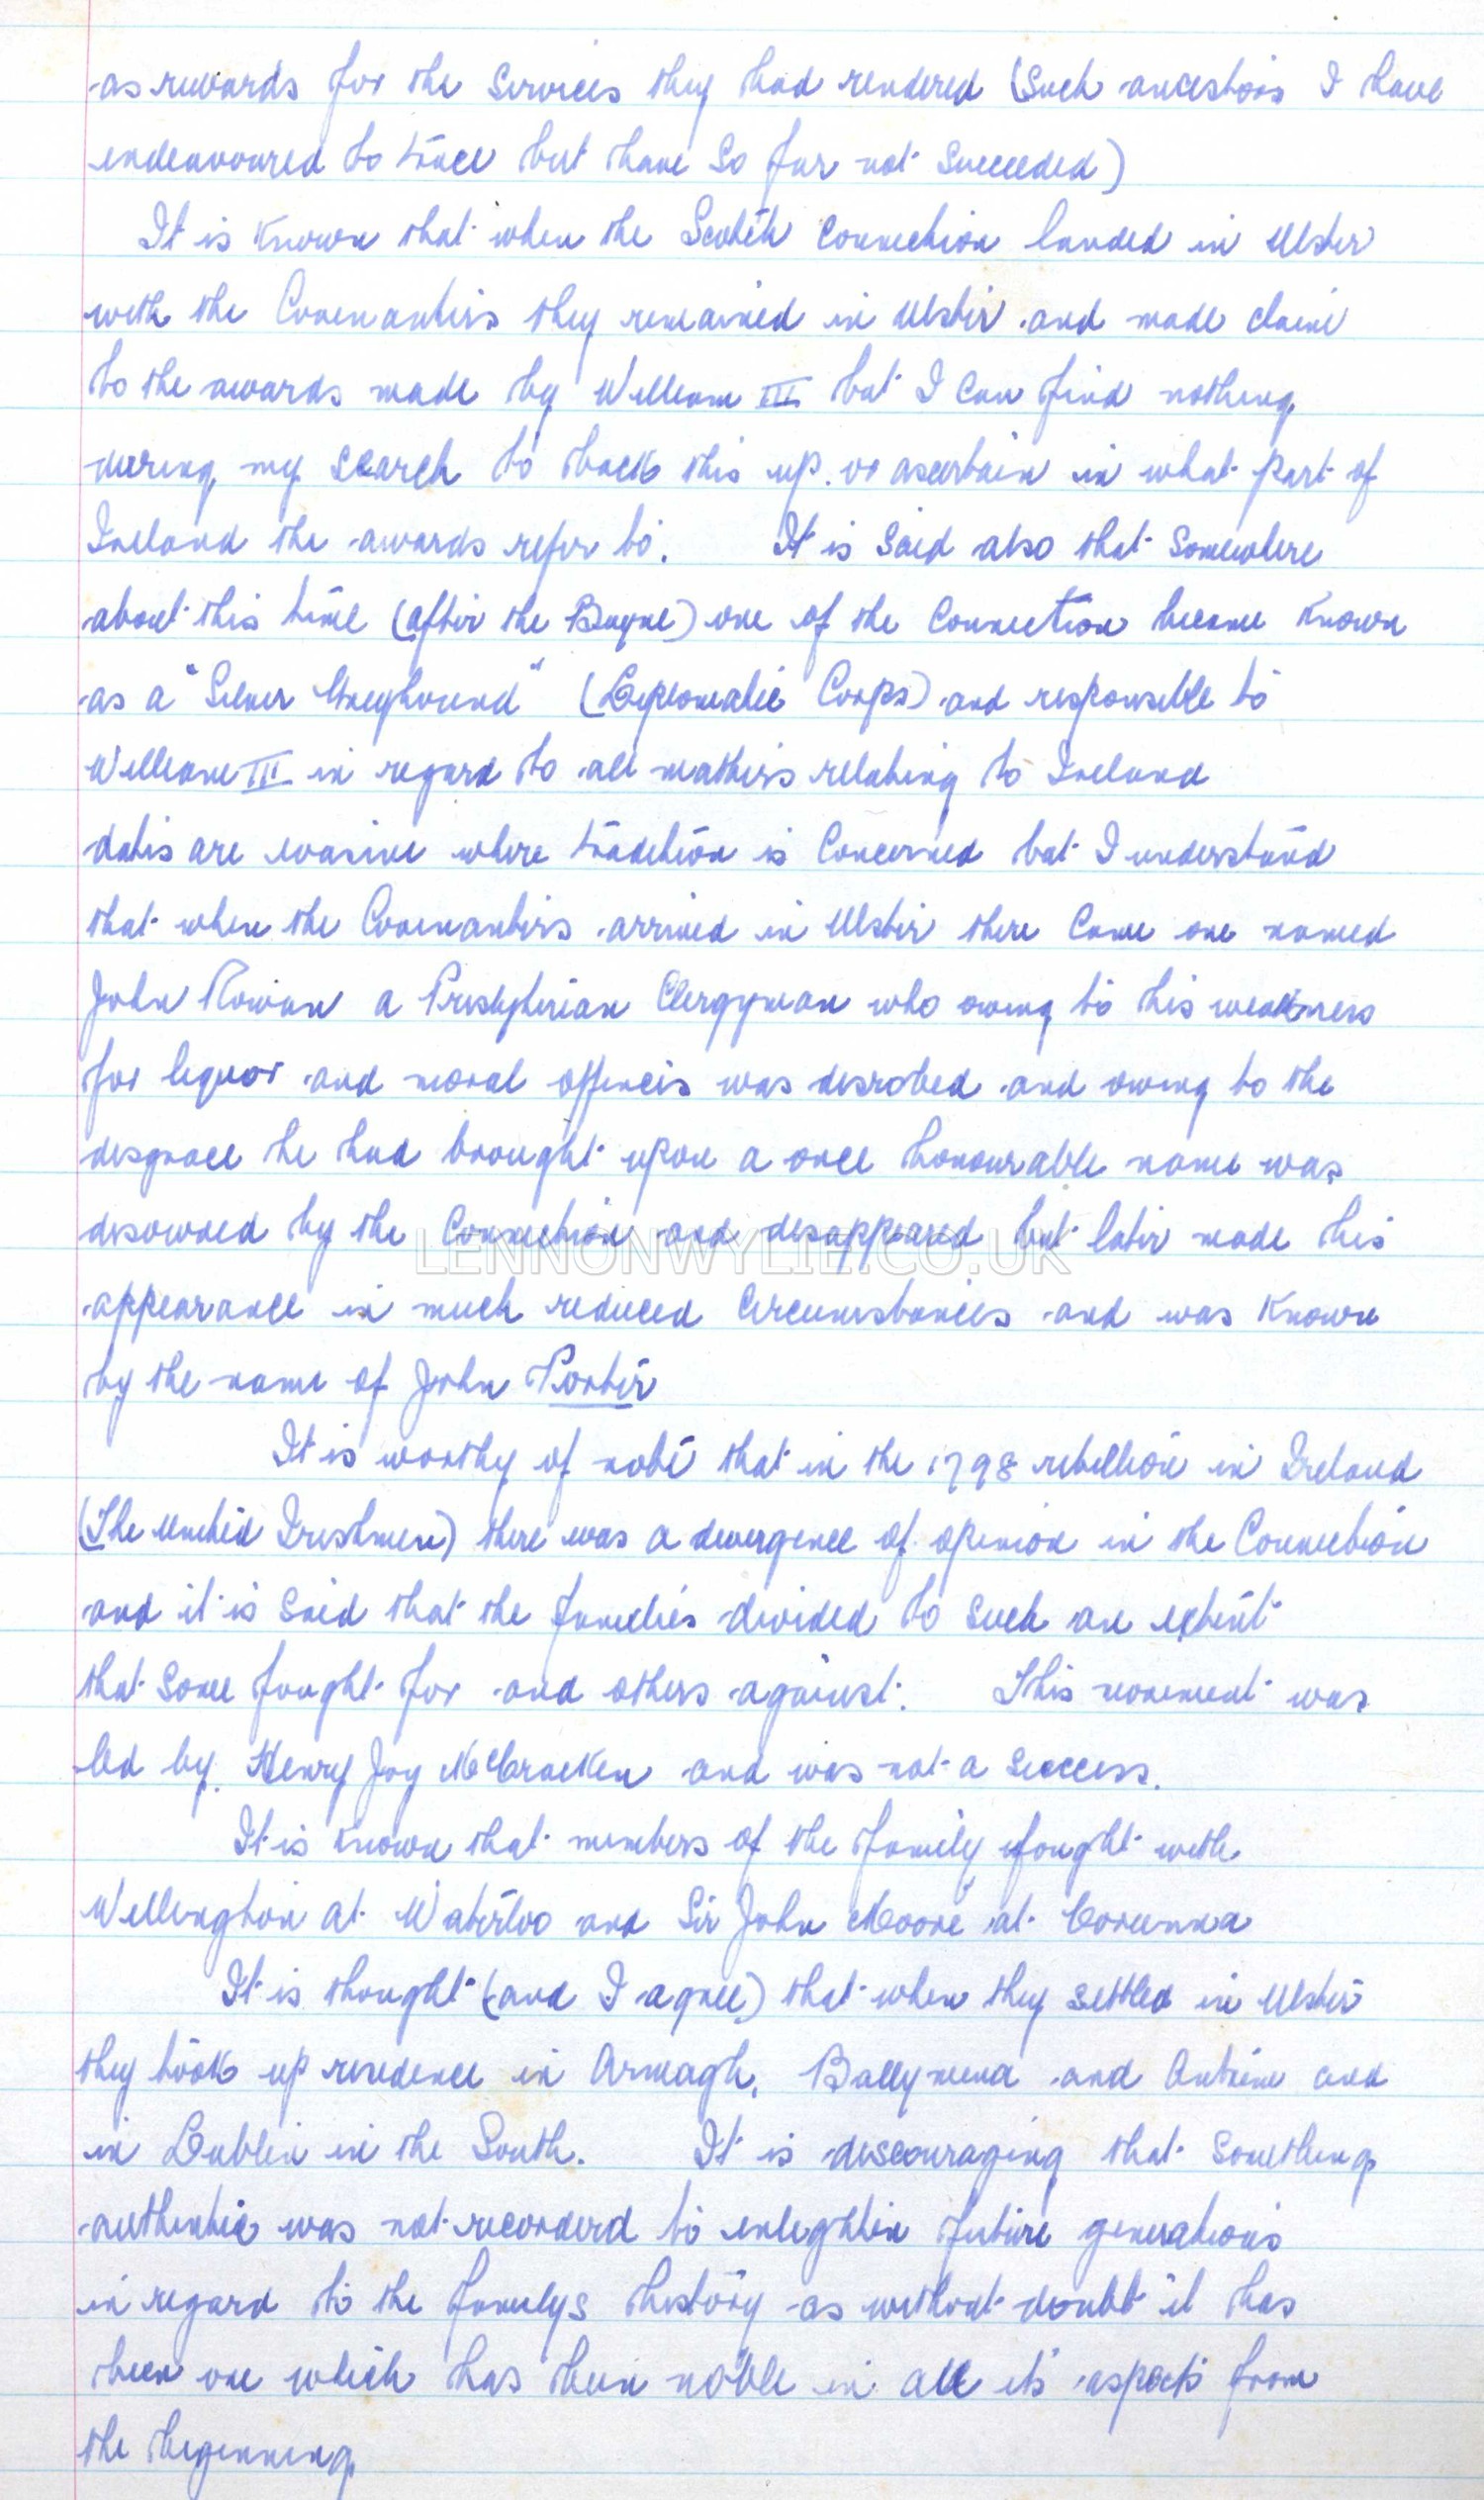 as rewards for the Services they had rendered (Such ancestors I have
endeavoured to trace but have so far not Succeeded)
It is Known that when the Scotch Connection landed in Ulster
with the Covenanters they remained in Ulster and made claim
to the awards made by William III but I can find nothing
during my search to back this up. or ascertain in what part of
Ireland the awards refer to. It is Said also that Somewhere
about this time (after the Boyne) one of the Connection became Known
as a "Silver Greyhound" (Diplomatic Corps) and responsible to
William III in regard to all matters relating to Ireland
dates are evasive where tradition is Concerned but I understand
that when the Covenanters arrived in Ulster there Came one named
John Rowan a Presbyterian Clergyman who owing to his weakness
for liquor and moral offences was disrobed and owing to the
disgrace he had brought upon a once honourable name was
disowned by the Connection and disappeared but later made his
LENNONWYLIE.CO.UK
appearance in much reduced Circumstances and was Known
by the name of John Porter
It is worthy of note that in the 1798 rebellion in Ireland
(The United Irishmen) there was a divergence of opinion in the Connection
and it is Said that the families divided to Such an extent
that Some fought for and others against. This movement was
led by Henry Joy McCracken and was not a Success.
It is Known that members of the family fought with
Wellington at Waterloo and Sir John Moore at Corunna
It is thought (and I agree) that when they Settled in Ulster
they took up residence in Armagh, Ballymena and Antrim and
in Dublin in the South. It is discouraging that Something
authentic was not recorderd to enlighten future generations
in regard to the familys history as without doubt it has
been one which has been noble in all its aspects from
the beginning